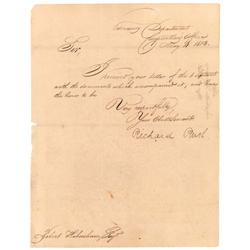 Treasury Department
Comptrollers Office
May 16 1812.
Sir,
I received your letter of the 6 instant
with the documents which accompanied it, and have
the honor to be
Very respectfully
Your Obedt Servant
Richard Rush